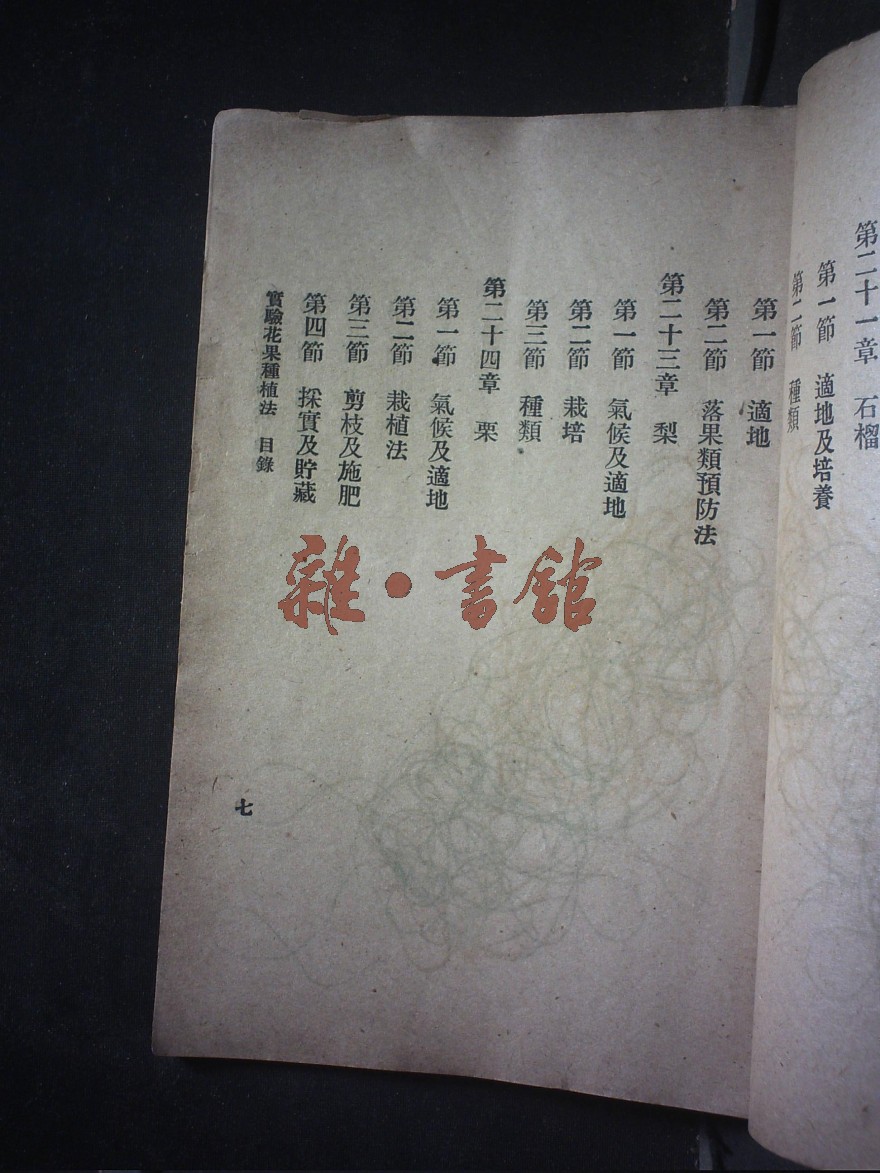 第二十一章　石榴
第一節　適地及培養
第二節　種類
第一節　適地
第二節　落果類預防法
第二十三章　梨
第一節　氣候及適地
第二節　栽培
第三節　種類
第二十四章　栗
第一節　氣候及適地
第二節　栽植法
第三節　剪枝及施肥
第四節　採實及貯藏
實驗花果種植法　目錄
七
雜·書館